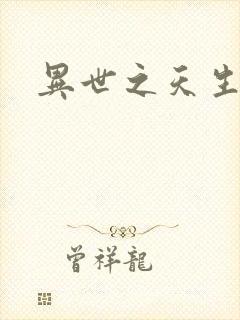 異世之天生
曾祥龍